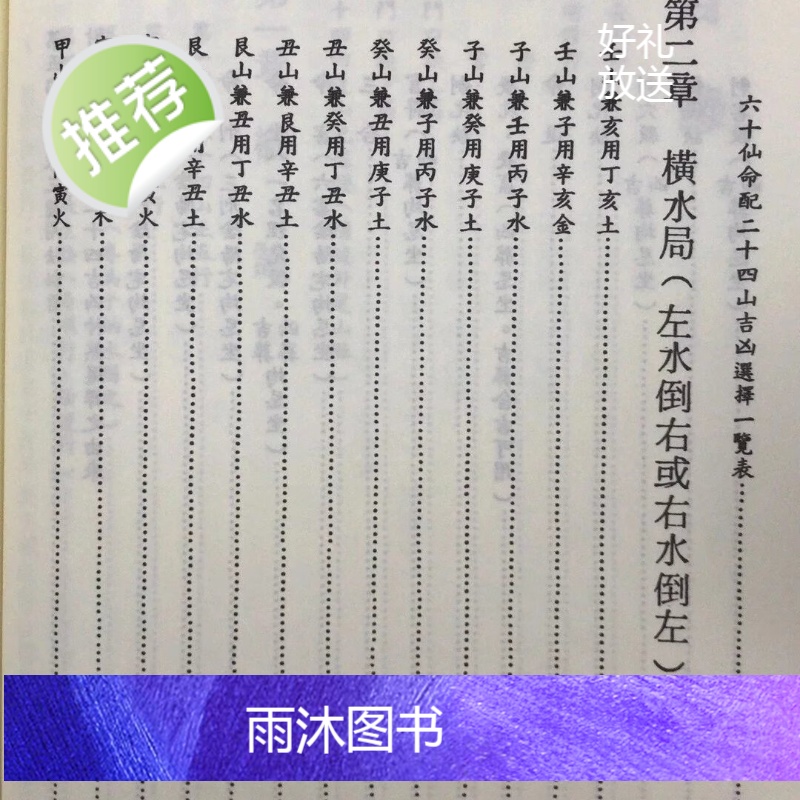 六十仙命配二十四山吉凶選擇一覽表
第二章 橫水局(左水倒右或右水倒左)
壬山兼亥用丁亥土
壬山兼子用辛亥金
子山兼壬用丙子水
子山兼癸用庚子土
癸山兼子用丙子水
癸山兼丑用庚子土
丑山兼癸用丁丑水
丑山兼艮用辛丑土
艮山兼丑用丁丑水
艮 用辛丑土
寅火
木
甲山 寅火
好礼
放送
推荐
雨沐图书